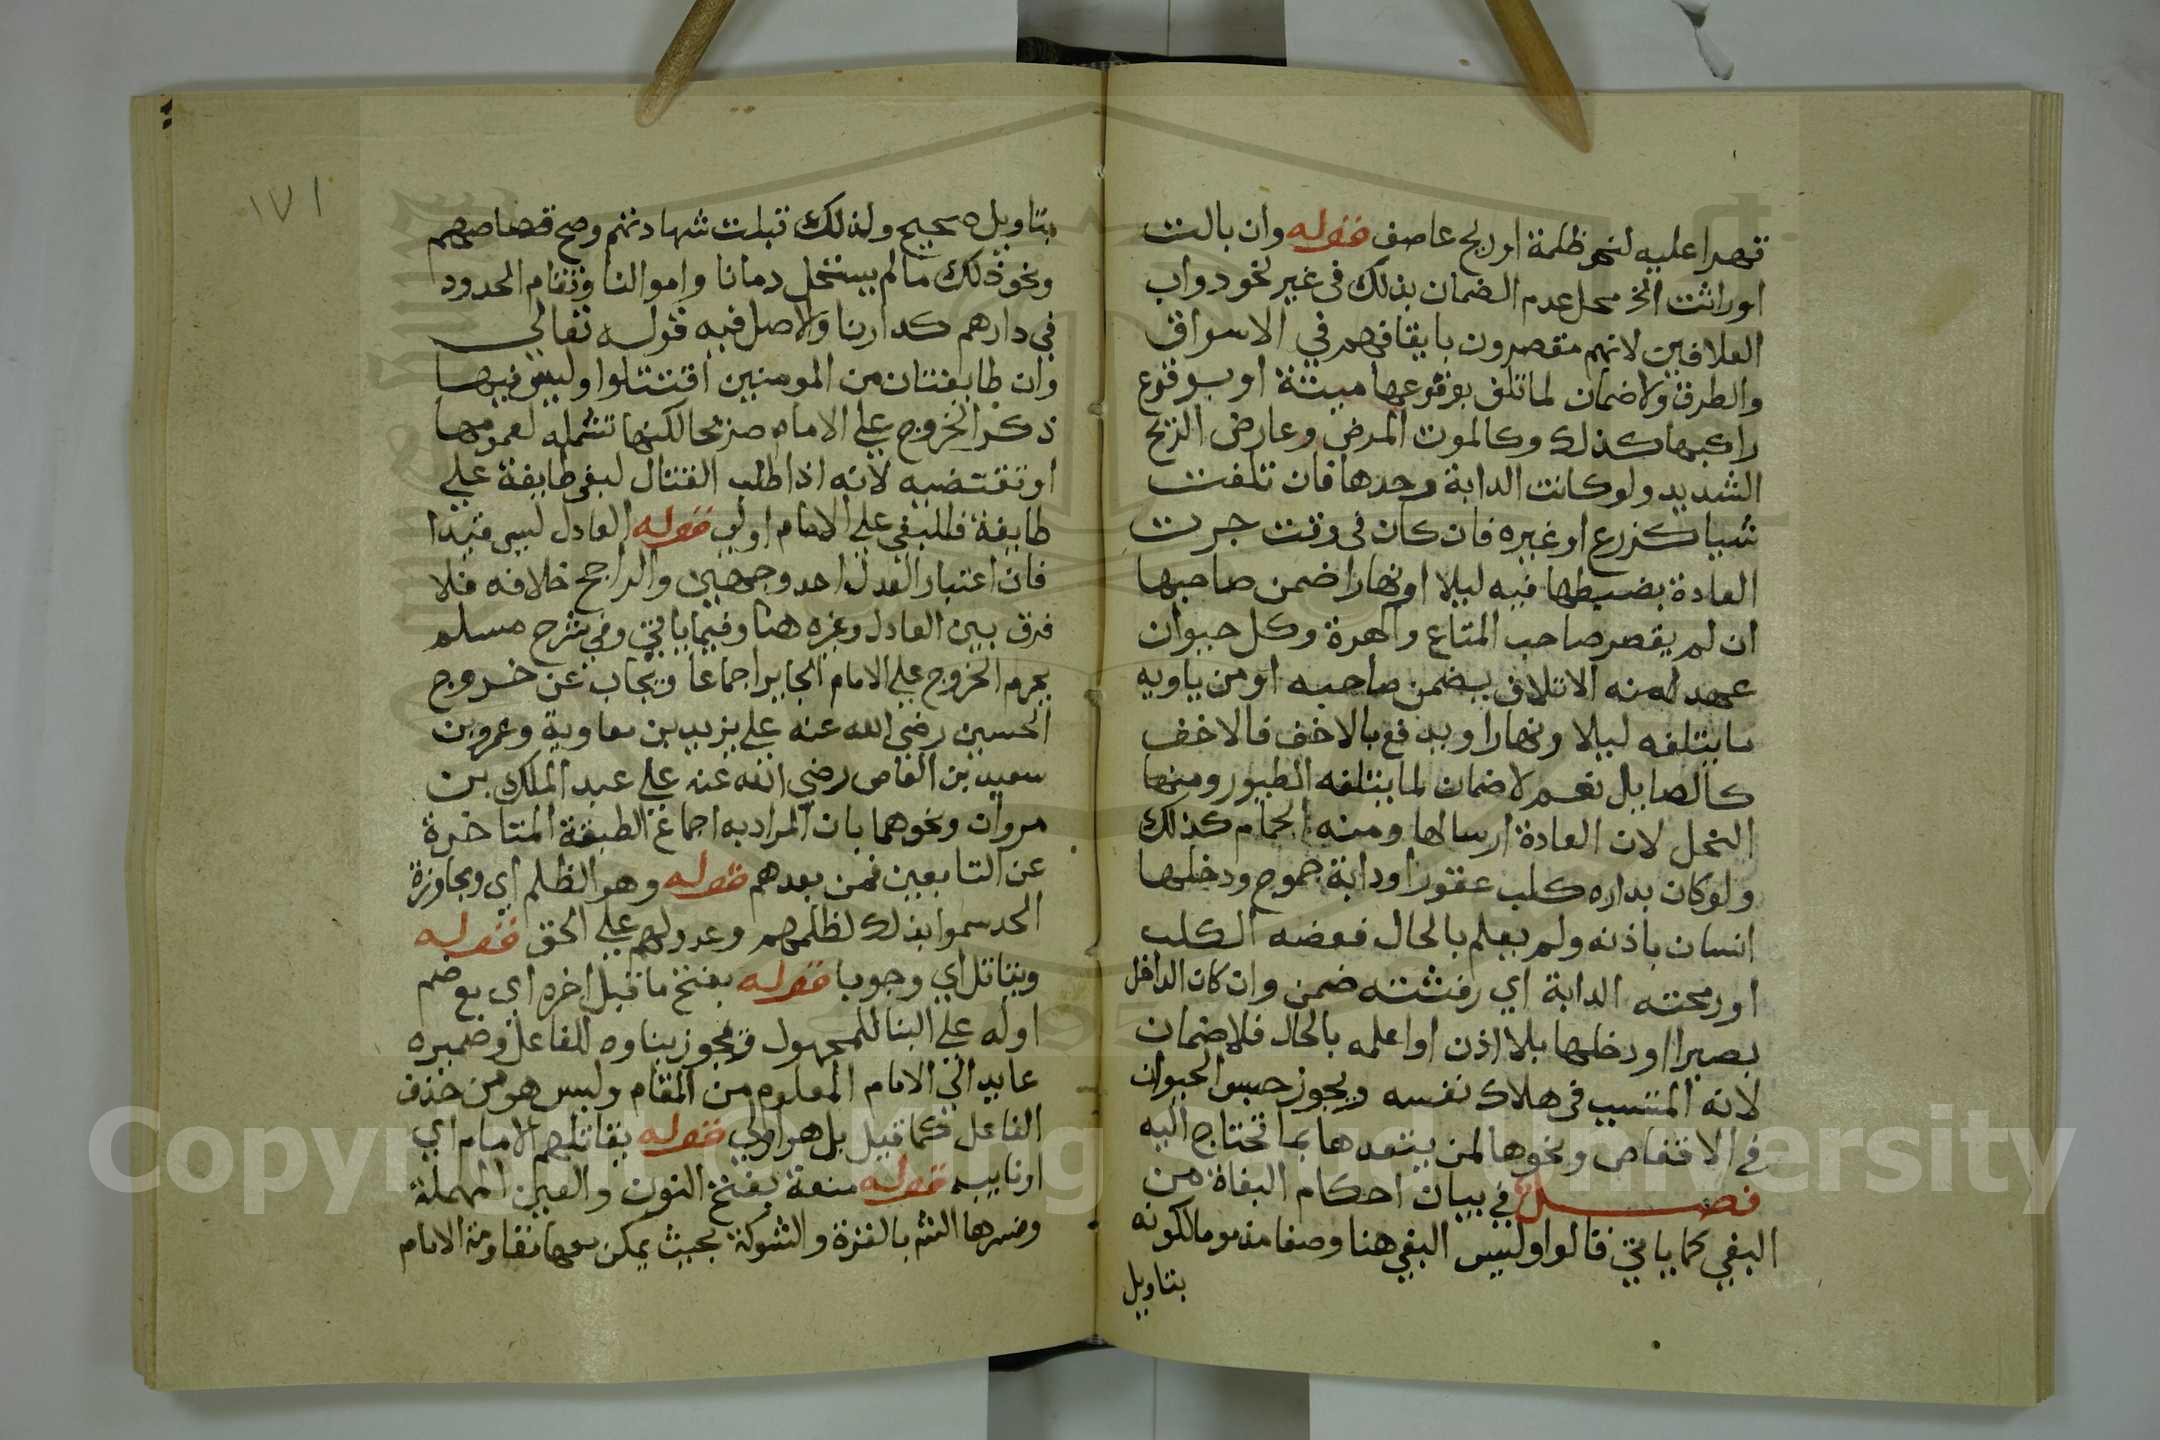 قهرا عليه لنحو ظلمة او ريح عاصف قوله وان بالت
او راثت الخ محل عدم الضمان بذلك في غير نحو دواب
العلافين لانهم مقصرون بايقافهم في الاسواق
والطرق ولا ضمان لما تلف بوقوعها ميتة او بوقوع
راكبها كذلك وكالموت المرض وعارض الريح
الشديد ولو كانت الدابة وحدها فان تلفت
شيا كزرع او غيره فان كان في وقت جرت
العادة بضبطها فيه ليلا او نهارا ضمن صاحبها
ان لم يقصر صاحب المتاع والهرة وكل حيوان
عهد له منه الاتلاف يضمن صاحبه او من ياويه
ما يتلفه ليلا ونهارا ويدفع بالاخف فالاخف
كالصايل نعم لا ضمان لما يتلفه الطيور ومنها
النحل لان العادة ارسالها ومنه الحمام كذلك
ولو كان بداره كلب عقور او دابة جموح ودخلها
انسان باذنه ولم يعلم بالحال فعضه الكلب
او رمحته الدابة اي رفسته ضمن وان كان الداخل
بصيرا او دخلها بلا اذن او اعلمه بالحال فلا ضمان
لانه المتسبب في هلاك نفسه ويجوز حبس الحيوان
في الاقفاص ونحوها لمن يتعدها بما تحتاج اليه
فصل في بيان احكام البغاة من
البغي كما ياتي قالوا وليس البغي هنا وصفا مذموما لكونه
بتاويل
١٧١
بتاويل صحيح ولذلك قبلت شهادتهم وصح قصاصهم
ونحو ذلك ما لم يستحل دمانا واموالنا وتقام الحدود
في دارهم كدارنا والاصل فيه قوله تعالي
وان طايفتان من المومنين اقتتلوا وليس فيها
ذكر الخروج علي الامام صريحا لكنها تشمله لعمومها
او تقتضيه لانه اذا طلب القتال لبغي طايفة علي
طايفة فللبغي علي الامام اولي قوله العادل ليس قيدا
فان اعتبار العدل احد وجهين والراجح خلافه فلا
فرق بين العادل وغيره هنا وفيما ياتي وفي شرح مسلم
يحرم الخروج علي الامام الجاير اجماعا ويجاب عن خروج
الحسين رضي الله عنه علي يزيد بن معاوية وعمرو بن
سعيد بن العاص رضي الله عنه علي عبد الملك بن
مروان ونحوهما بان المراد به اجماع الطبقة المتاخرة
عن التابعين فمن بعدهم قوله وهو الظلم اي ومجاوزة
الحد سموا بذلك لظلمهم وعدولهم علي الحق قوله
ويقاتل اي وجوبا قوله بفتح ما قبل اخره اي مع ضم
اوله علي البنا للمجهول ويجوز بناوه للفاعل وضميره
عايد الي الامام المعلوم من المقام وليس هو من حذف
الفاعل كما قيل بل هو اولي قوله يقاتلهم الامام اي
او نايبه قوله منعة بفتح النون والعين المهملة
وفسرها الشم بالقوة والشوكة بحيث يمكن معها مقاومة الامام